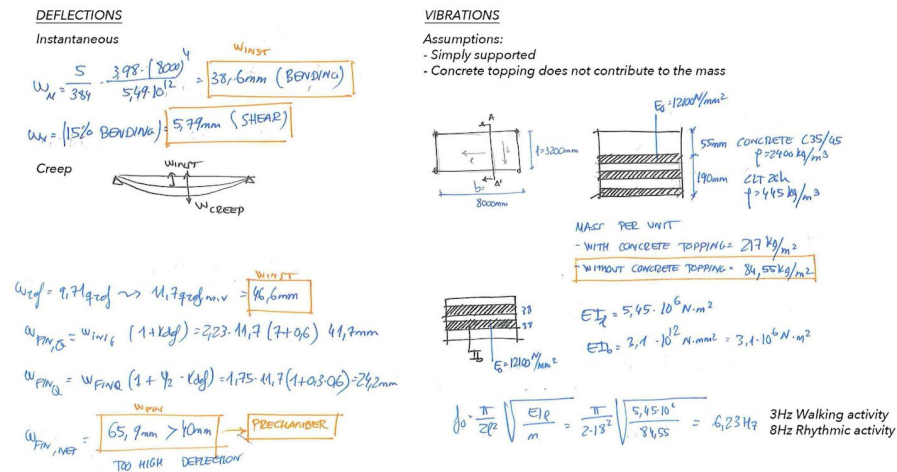 DEFLECTIONS
Instantaneous
WINST
WM = 5/384 · 3,98·(8000)^4 / 5,49·10^12 = 38,6mm (BENDING)
(15% BENDING) = 5,79mm (SHEAR)
Creep
WINST
WCREEP
WINST
= 46,6mm
WFIN,G = (1+Kdef) = 2,23·11,7 41,7mm
WFINQ = WFINQ (1+Ψ2·Kdef) = 1,75·11,7(1+0,3·0,6) = 24,2mm
WFIN
WFIN,NET = 65,9mm > 40mm → PRECHAMBER
TOO HIGH DEFLECTION
VIBRATIONS
Assumptions:
- Simply supported
- Concrete topping does not contribute to the mass
A
A'
l
b=
8000mm
l=3200mm
E0=12100N/mm²
55mm CONCRETE C35/45
ρ=2400kg/m³
190mm CLT
ρ=445kg/m³
MASS PER UNIT
- WITH CONCRETE TOPPING = 217 kg/m²
- WITHOUT CONCRETE TOPPING = 84,55kg/m²
E0=12100N/mm²
EIl = 5,45·10^6 N·m²
EIb = 3,1·10^12 N·mm² = 3,1·10^6 N·m²
f0 = π/2l² √(EIl/m) = π/2·18² √(5,45·10^6/84,55) = 6,23Hz
3Hz Walking activity
8Hz Rhythmic activity